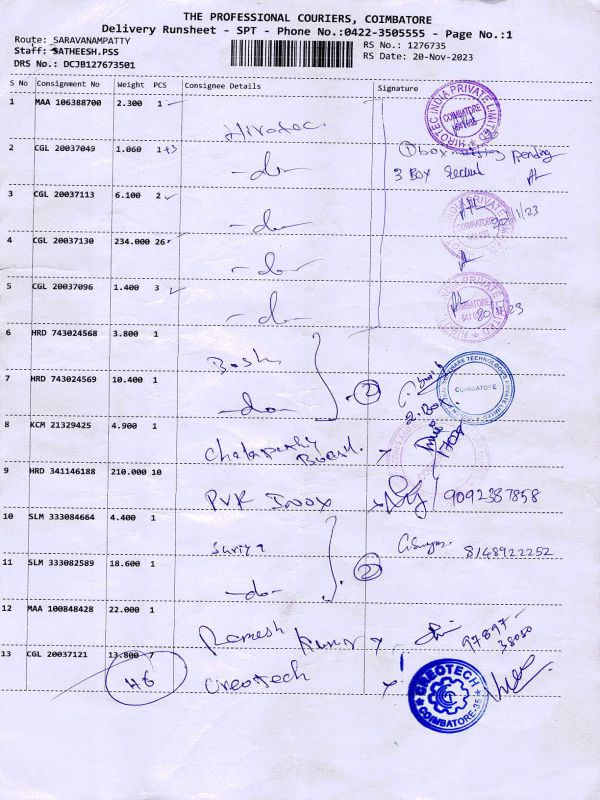 THE PROFESSIONAL COURIERS, COIMBATORE
Delivery Runsheet - SPT - Phone No.:0422-3505555 - Page No.:1
Route: SARAVANAMPATTY
Staff: SATHEESH.PSS
DRS No.: DCJB127673501
RS No.: 1276735
RS Date: 20-Nov-2023
S No Consignment No Weight PCS Consignee Details Signature
1 MAA 106388700 2.300 1 Hirotec
HIROTEC INDIA PRIVATE LIMITED COIMBATORE
2 CGL 20037049 1.060 1+3 -do-
1 box missing pending
3 Box
3 CGL 20037113 6.100 2 -do-
4 CGL 20037130 234.000 26 -do-
5 CGL 20037096 1.400 3 -do-
6 HRD 743024568 3.800 1 Bosh
7 HRD 743024569 10.400 1 -do- 2
2. Box
COIMBATORE
8 KCM 21329425 4.900 1
9 HRD 341146188 210.000 10 PVR Inox 9092387858
10 SLM 333084664 4.400 1 Suriya
8148922252
11 SLM 333082589 18.600 1 -do- 2
12 MAA 100848428 22.000 1 Ramesh Kumar
97897-
38080
13 CGL 20037121 13.800 7 Creotech
46
CREOTECH COIMBATORE-35